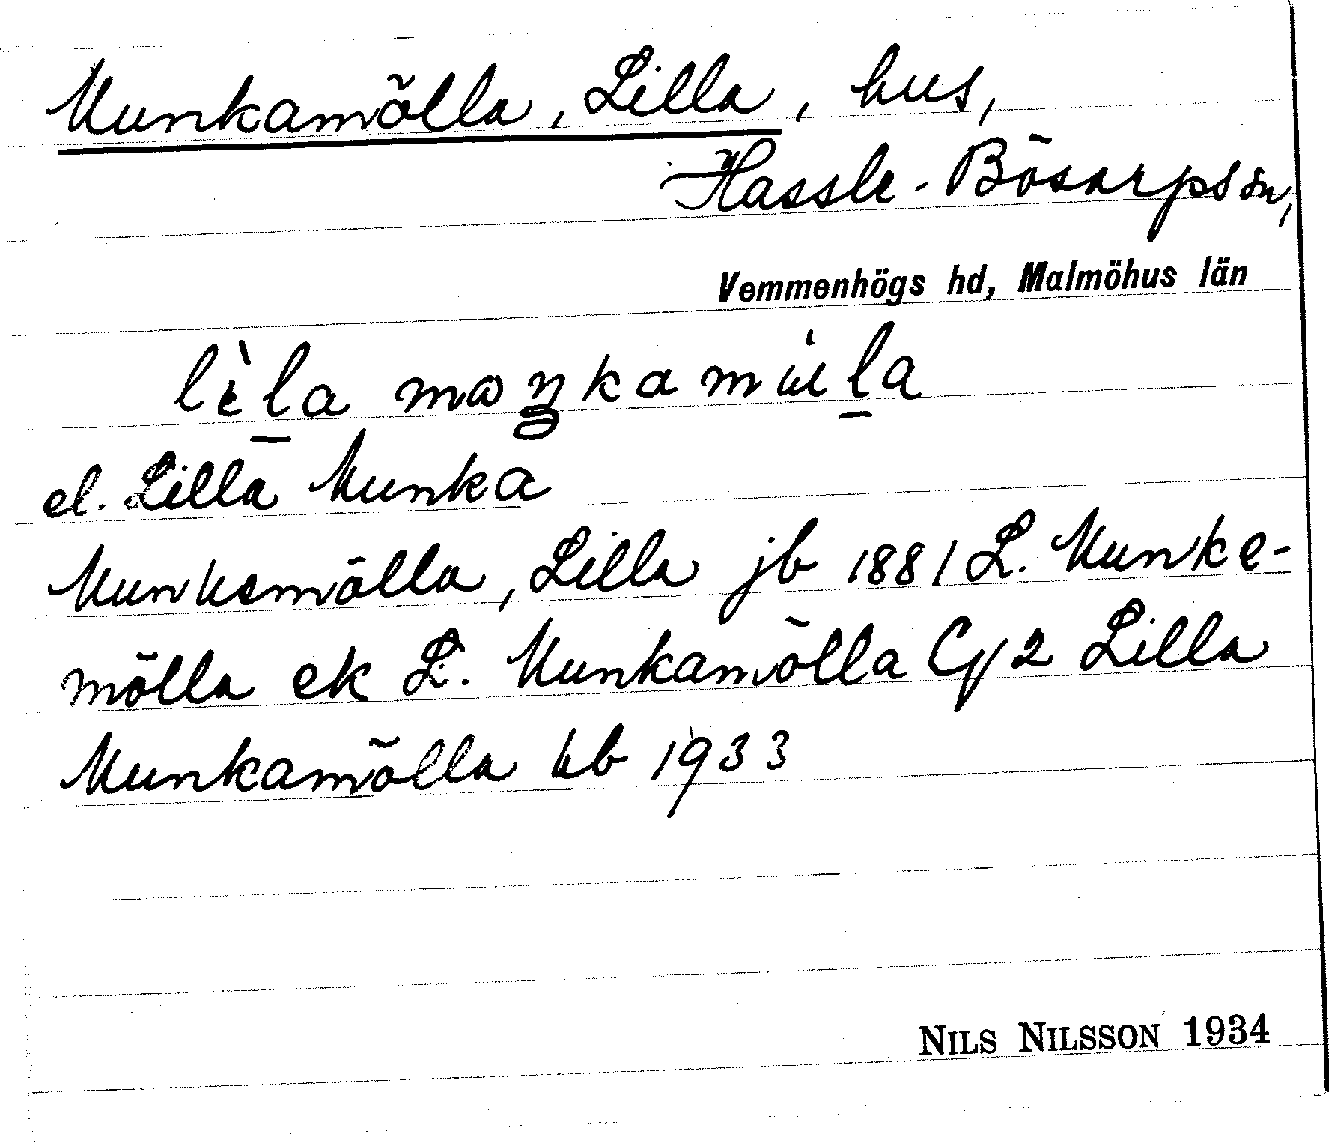 Munkamölla, Lilla, hus,
Hassle-Bösarps sn,
Vemmenhögs hd, Malmöhus län
lèla
el. Lilla Munka
Munkemölla, Lilla jb 1881 L. Munke-
mölla ek L. Munkamölla Cy2 Lilla
Munkamölla kb 1933
NILS NILSSON 1934